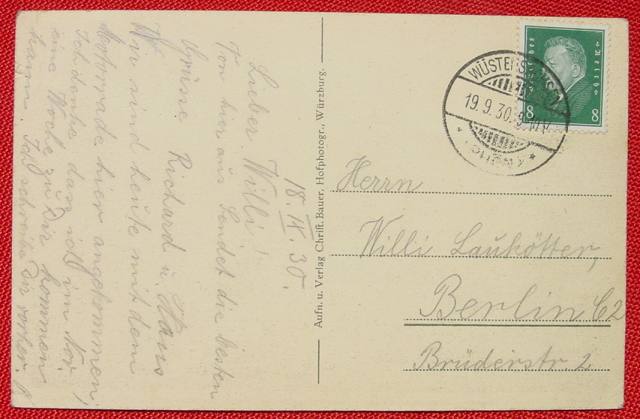 18. IX. 30.
Lieber Willi!
Von hier aus sendet die besten
Grüsse Richard u. Hans
Wir sind heute mit dem
Motorrade hier angekommen,
Ich denke, das ich im Nov.
eine Woche zu Dir kommen
kann. Ich schreibe Dir vorher.
Aufn. u. Verlag Christ. Bauer, Hofphotogr., Würzburg.
WÜSTENSACHSEN
19. 9. 30.
(RHÖN)
8 8
Herrn
Willi Laukötter,
Berlin C2
Brüderstr. 2